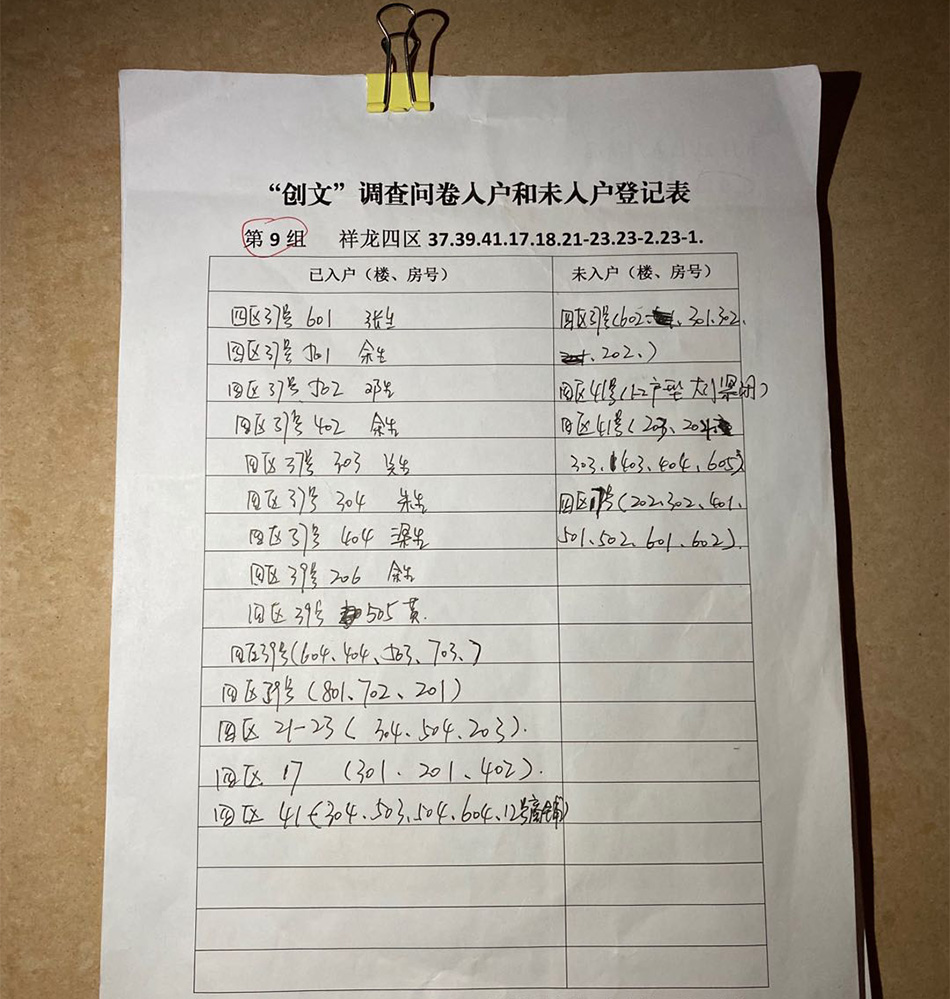 “创文”调查问卷入户和未入户登记表
第 9 组 祥龙四区 37.39.41.17.18.21-23.23-2.23-1.
已入户（楼、房号） 未入户（楼、房号）
四区37号 601 张生 四区37号(602、301.302、
四区37号 501 余生 202、)
四区37号 502 邓生 四区41号(
四区37号 402 余生 四区41号(203、
四区37号 303 吴生 303、403、404、605)
四区37号 304 朱生 四区17号(202.302、401、
四区37号 404 梁生 501、502、601、602).
四区 39号 206 余生
四区 39号 505 黄.
四区39号(604、404、503、703、)
四区 39号 (801、702、201)
四区 21-23 ( 304、504、203).
四区 17 (301、201、402).
四区 41 (304、503、504、604、12号商铺)